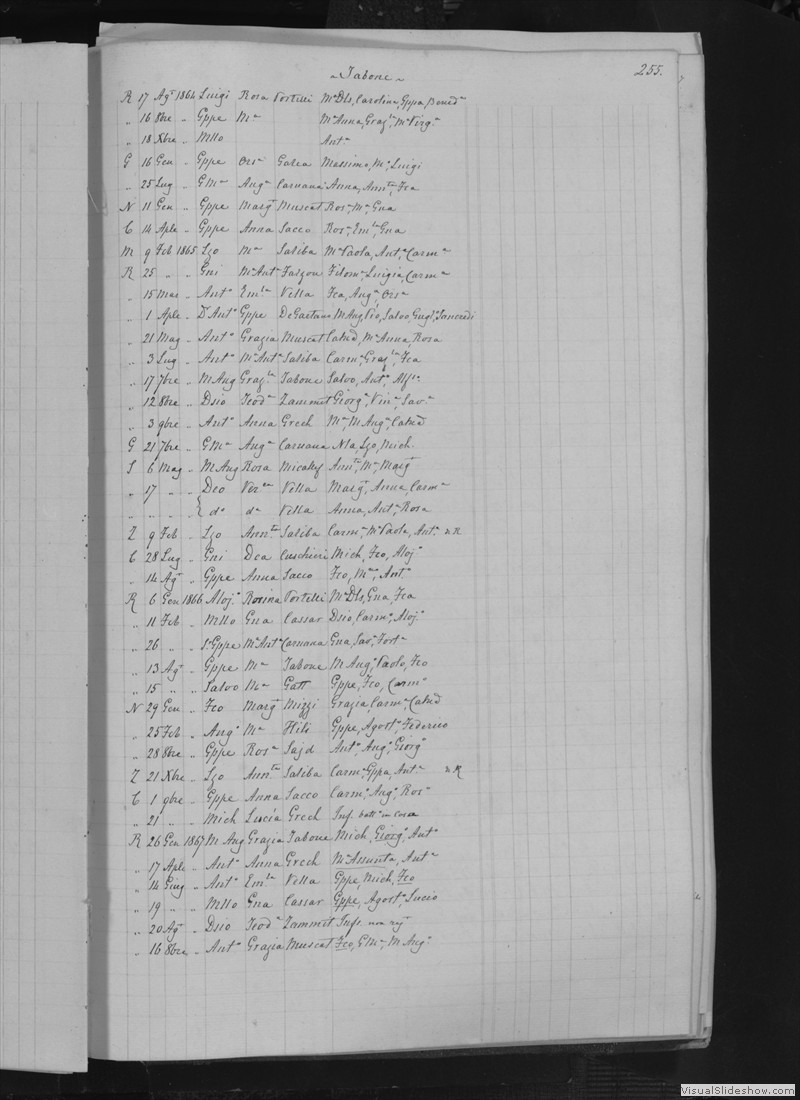 255.
~ Tabone ~
R 17 Agt 1864 Luigi Rosa Portelli Ma Dls, Carolina, Gppa, Bened
" 16 8bre " Gppe Ma Ma Anna, Grazla, Ma Virga
" 18 Xbre " Mllo Anta
G 16 Gen " Gppe Orsa Galea Massimo, Ma, Luigi
" 25 Lug " GMa Anga Caruana Anna, Annta, Fca
N 11 Gen " Gppe Margta Muscat Rosa, Ma, Gna
C 14 Aple " Gppe Anna Sacco Rosa, Emla, Gna
M 9 Feb 1865 Lzo Ma Saliba Ma Paola, Anta, Carma
R 25 " " Gni Ma Anta Falzon Filoma, Luigia, Carma
" 15 Mar " Anto Emla Vella Fca, Anga, Orsa
" 1 Aple " Dr Anto Gppe DeGaetano M Ang, Pio, Salvo, Gugl, Tancredi
" 21 Mag " Anto Grazia Muscat Catad, Ma Anna, Rosa
" 3 Lug " Anto Ma Anta Saliba Carma, Grazla, Fca
" 17 7bre " M Ang Grazla Tabone Salvo, Anto, Alfso
" 12 8bre " Dsio Teoda Zammit Giorgo, Vino, Savo
" 3 9bre " Anto Anna Grech Ma, M Anga, Catad
G 21 7bre " GMa Anga Caruana Nla, Lzo, Mich
S 6 Mag " M Ang Rosa Micallef Annta, Ma, Margta
" 17 " " Deo Verca Vella Margta, Anna, Carma
" " " " do do Vella Anna, Anta, Rosa
Z 9 Feb " Lzo Annta Saliba Carma, Ma Paola, Anta & R
C 28 Lug " Gni Dca Cuschieri Mich, Fco, Aloja
" 14 Agt " Gppe Anna Sacco Fco, Mno, Anto
R 6 Gen 1866 Aloj. Rosina Portelli Ma Dls, Gna, Fca
" 11 Feb " Mllo Gna Cassar Dsio, Carmo, Alojo
" 26 " " Sr Gppe Ma Anta Caruana Gna, Sava, Forta
" 13 Agt " Gppe Ma Tabone M Ang, Paolo, Fco
" 15 " " Salvo Ma Gatt Gppe, Fco, Carmo
N 29 Gen " Fco Margta Mizzi Grazia, Carma, Catad
" 25 Feb " Ango Ma Hili Gppe, Agosto, Federico
" 28 8bre " Gppe Rosa Sajd Anto, Ango, Giorgo
Z 21 Xbre " Lzo Annta Saliba Carma, Gppa, Anta & R
C 1 9bre " Gppe Anna Sacco Carmo, Ango, Roso
" 21 " " Mich Lucia Grech Inf. batt. in casa
R 26 Gen 1867 M Ang Grazia Tabone Mich, Giorgo, Anto
" 17 Aple " Anto Anna Grech Ma Assunta, Anta
" 14 Giug " Anto Emla Vella Gppe, Mich, Fco
" 19 " " Mllo Gna Cassar Gppe, Agosto, Lucio
" 20 Agt " Dsio Teoda Zammit Infs. non regt
" 16 8bre " Anto Grazia Muscat Fco, GMa, M Ango
VisualSlideshow.com